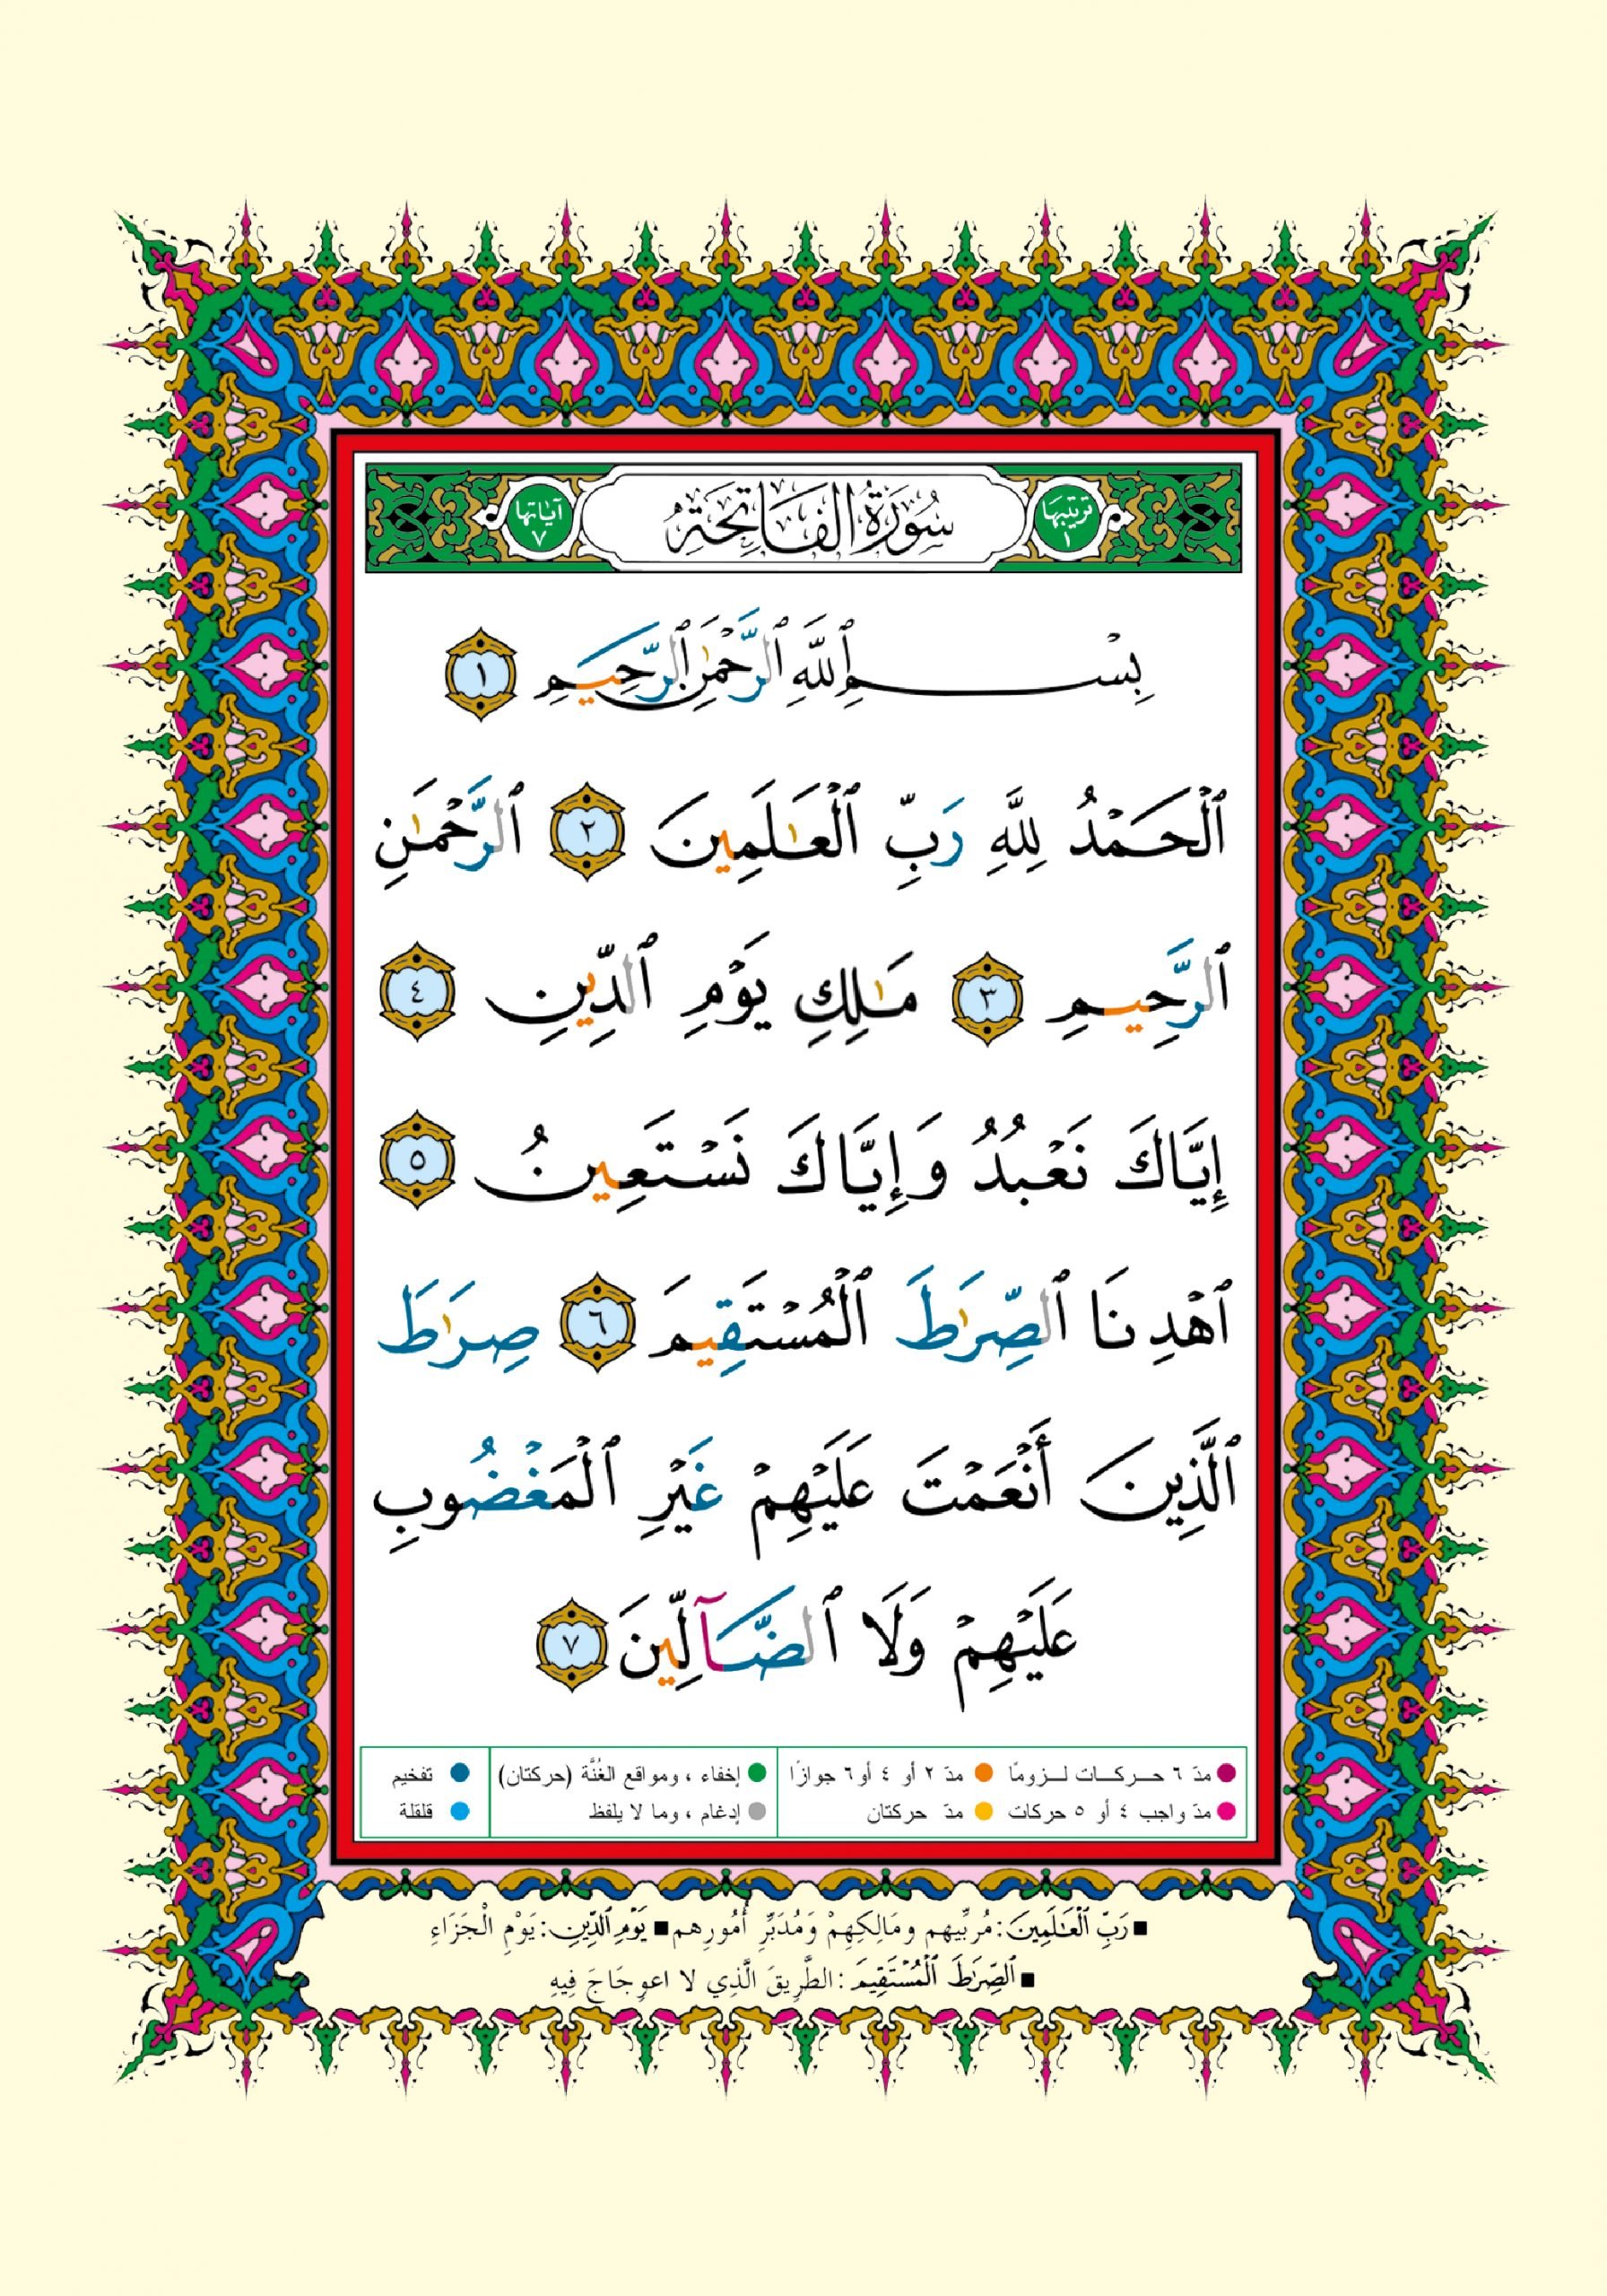 ترتيبها ١ سُورَةُ الفَاتِحَةِ آياتها ٧
بِسْمِ ٱللَّهِ ٱلرَّحْمَٰنِ ٱلرَّحِيمِ ١
ٱلْحَمْدُ لِلَّهِ رَبِّ ٱلْعَٰلَمِينَ ٢ ٱلرَّحْمَٰنِ
ٱلرَّحِيمِ ٣ مَٰلِكِ يَوْمِ ٱلدِّينِ ٤
إِيَّاكَ نَعْبُدُ وَإِيَّاكَ نَسْتَعِينُ ٥
ٱهْدِنَا ٱلصِّرَٰطَ ٱلْمُسْتَقِيمَ ٦ صِرَٰطَ
ٱلَّذِينَ أَنْعَمْتَ عَلَيْهِمْ غَيْرِ ٱلْمَغْضُوبِ
عَلَيْهِمْ وَلَا ٱلضَّآلِّينَ ٧
مدّ ٦ حركات لزومًا مدّ ٢ أو ٤ أو ٦ جوازًا إخفاء ، ومواقع الغُنَّة (حركتان) تفخيم
مدّ واجب ٤ أو ٥ حركات مدّ حركتان إدغام ، وما لا يلفظ قلقلة
■ رَبِّ ٱلْعَٰلَمِينَ: مُرَبِّيهم ومَالِكِهِمْ وَمُدَبِّرِ أُمُورِهم ■ يَوْمِ ٱلدِّينِ: يَوْمِ الْجَزَاءِ
■ ٱلصِّرَٰطَ ٱلْمُسْتَقِيمَ: الطَّرِيقَ الَّذِي لا اعوِجَاجَ فِيهِ